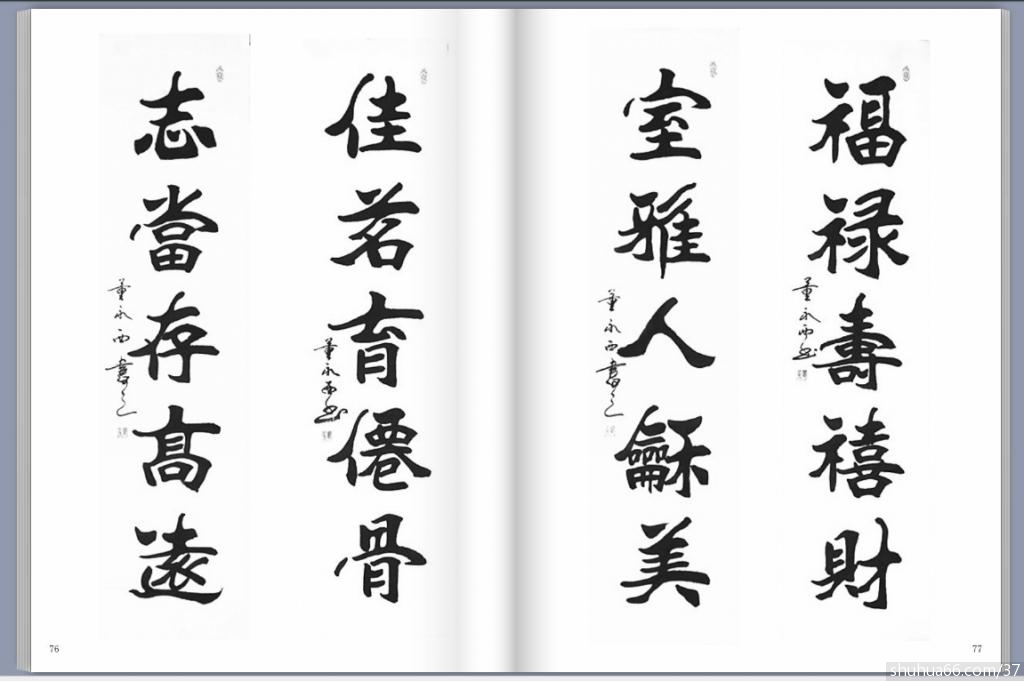 福禄壽禧財
董永西書
室雅人龢美
董永西書之
佳茗育僊骨
董永西書
志當存髙遠
董永西書之
76
77
shuhua66.com/37